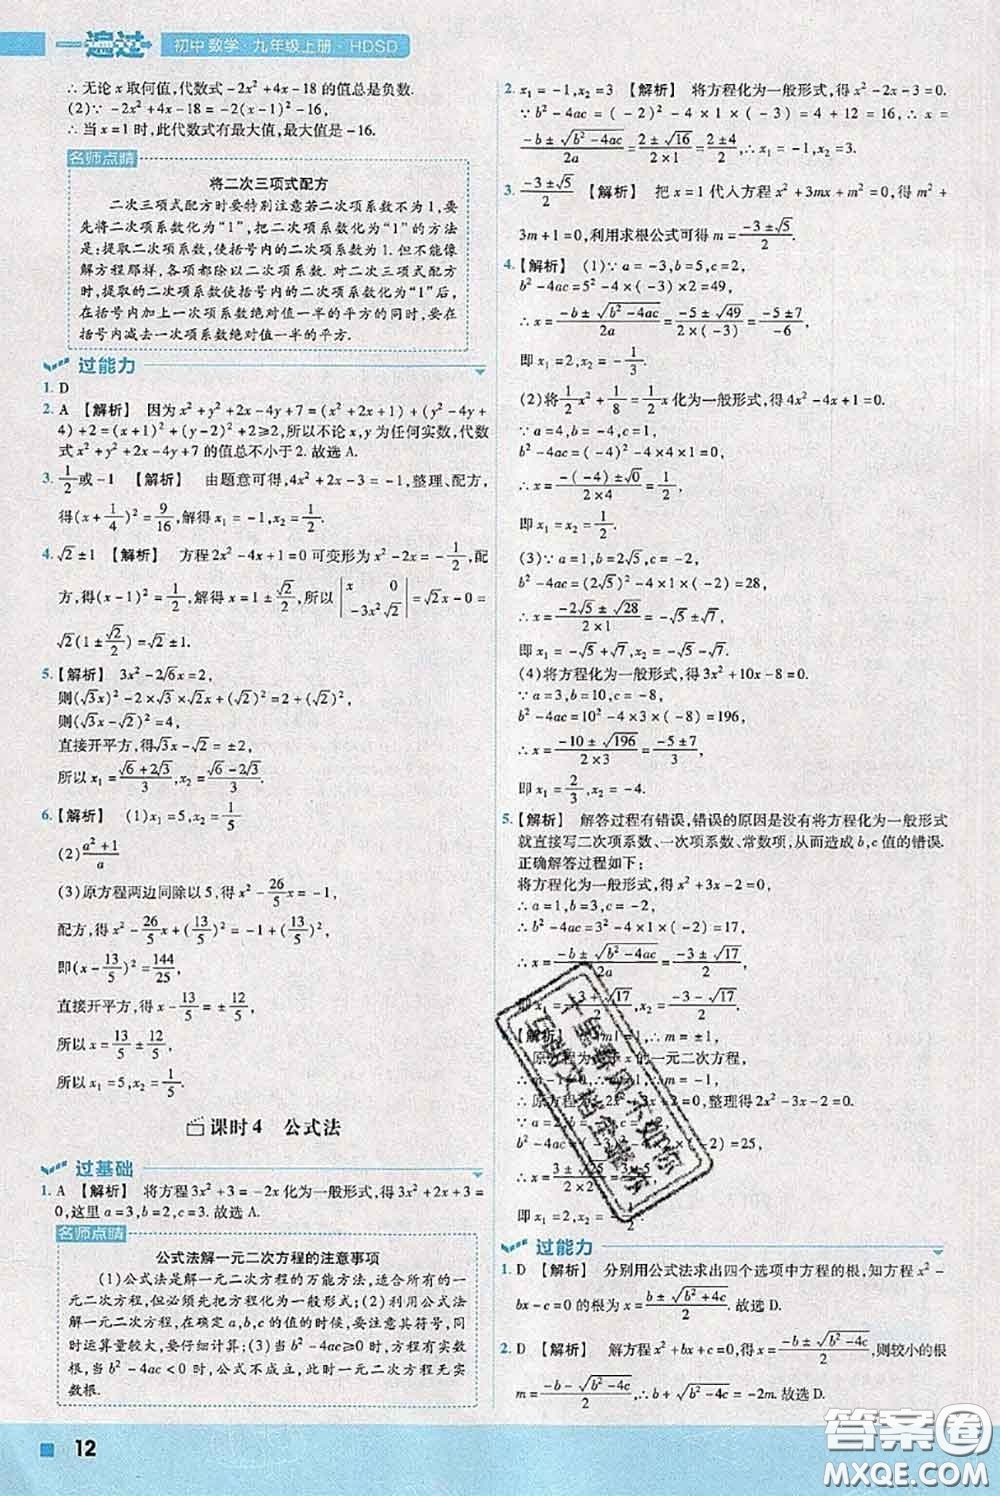 一遍过 初中数学·九年级上册·HDSD
∴ 无论 x 取何值,代数式 -2x²+4x-18 的值总是负数.
(2)∵ -2x²+4x-18 = -2(x-1)²-16,
∴ 当 x=1 时,此代数式有最大值,最大值是 -16.
名师点睛
将二次三项式配方
二次三项式配方时要特别注意若二次项系数不为 1,要
先将二次项系数化为“1”,把二次项系数化为“1”的方法
是:提取二次项系数,使括号内的二次项系数为 1. 但不能像
解方程那样,各项都除以二次项系数. 对二次三项式配方
时,提取的二次项系数使括号内的二次项系数化为“1”后,
在括号内加上一次项系数绝对值一半的平方的同时,要在
括号内减去一次项系数绝对值一半的平方.
过能力
1. D
2. A 【解析】 因为 x²+y²+2x-4y+7=(x²+2x+1)+(y²-4y+
4)+2=(x+1)²+(y-2)²+2≥2,所以不论 x,y 为任何实数,代数
式 x²+y²+2x-4y+7 的值总不小于 2. 故选 A.
3. 1/2 或 -1 【解析】 由题意可得,4x²+2x-1 = 
得(x+1/4)²=9/16,解得 x₁=-1,x₂=1/2.
4. √2±1 【解析】 方程 2x²-4x+1=0 可变形为 x²-2x=-1/2,配
方,得(x-1)²=1/2,解得 x=1±√2/2,所以 |x 0; -3x² √2| =√2x-0=
√2(1±√2/2)=√2±1.
5. 【解析】 3x²-2√6x=2,
则(√3x)²-2×√3x×√2+(√2)²=2+(√2)²,
则(√3x-√2)²=4,
直接开平方,得√3x-√2=±2,
所以 x₁=(√6+2√3)/3,x₂=(√6-2√3)/3.
6. 【解析】 (1)x₁=5,x₂=1/5
(2)(a²+1)/a
(3)原方程两边同除以 5,得 x²-26/5x=-1,
配方,得 x²-26/5x+(13/5)²=(13/5)²-1,
即(x-13/5)²=144/25,
直接开平方,得 x-13/5=±12/5,
所以 x=13/5±12/5,
所以 x₁=5,x₂=1/5.
课时4 公式法
过基础
1. A 【解析】 将方程 3x²+3=-2x 化为一般形式,得 3x²+2x+3=
0,这里 a=3,b=2,c=3. 故选 A.
名师点睛
公式法解一元二次方程的注意事项
(1)公式法是解一元二次方程的万能方法,适合所有的一
元二次方程,但必须先把方程化为一般形式;(2)利用公式法
解一元二次方程,在确定 a,b,c 的值的时候,要注意其符号,同
时运算量较大,要仔细计算;(3)当 b²-4ac≥0 时,方程有实数
根,当 b²-4ac<0 时,公式不成立,此时一元二次方程无实
数根.
2. x₁=-1,x₂=3 【解析】 将方程化为一般形式,得 x²-2x-3=0.
∵ b²-4ac=(-2)²-4×1×(-3)=4+12=16,∴ x=
(-b±√(b²-4ac))/2a=(2±√16)/(2×1)=(2±4)/2,∴ x₁=-1,x₂=3.
3. (-3±√5)/2 【解析】 把 x=1 代入方程 x²+3mx+m²=0,得 m²+
3m+1=0,利用求根公式可得 m=(-3±√5)/2.
4. 【解析】 (1)∵ a=-3,b=5,c=2,
b²-4ac=5²-4×(-3)×2=49,
∴ x=(-b±√(b²-4ac))/2a=(-5±√49)/(2×(-3))=(-5±7)/-6,
即 x₁=2,x₂=-1/3.
(2)将 1/2x²+1/8=1/2x 化为一般形式,得 4x²-4x+1=0.
∵ a=4,b=-4,c=1,
b²-4ac=(-4)²-4×4×1=0,
∴ x=(-(-4)±√0)/(2×4)=1/2,
即 x₁=x₂=1/2.
(3)∵ a=1,b=2√5,c=-2,
b²-4ac=(2√5)²-4×1×(-2)=28,
∴ x=(-2√5±√28)/(2×1)=-√5±√7,
即 x₁=-√5+√7,x₂=-√5-√7.
(4)将方程化为一般形式,得 3x²+10x-8=0.
∵ a=3,b=10,c=-8,
b²-4ac=10²-4×3×(-8)=196,
∴ x=(-10±√196)/(2×3)=(-5±7)/3,
即 x₁=2/3,x₂=-4.
5. 【解析】 解答过程有错误,错误的原因是没有将方程化为一般形式
就直接写二次项系数、一次项系数、常数项,从而造成 b,c 值的错误.
正确解答过程如下:
将方程化为一般形式,得 x²+3x-2=0,
∵ a=1,b=3,c=-2,
∴ b²-4ac=3²-4×1×(-2)=17,
∴ x=(-b±√(b²-4ac))/2a=(-3±√17)/2,
即 x₁=(-3+√17)/2,x₂=(-3-√17)/2.
【解析】 m²=1,∴ m=±1,
原方程 x 的一元二次方程,
∴ m-1≠0, ∴ m=-1,
∴ 原方程 =0,整理得 2x²-3x-2=0,
b²-4ac= ×(-2)=25,
∴ x=(3±√25)/
即 x₁=2,x₂=-
过能力
1. D 【解析】 分别用公式法求出四个选项中方程的根,知方程 x²-
bx-c=0 的根为 x=(b±√(b²+4c))/2. 故选 D.
2. D 【解析】 解方程 x²+bx+c=0,得 x=(-b±√(b²-4c))/2,则较小的根
m=(-b-√(b²-4c))/2,∴ b+√(b²-4c)=-2m. 故选 D.
十里春风不如你
百度文档全靠你
12
答案圈
MXQE.COM